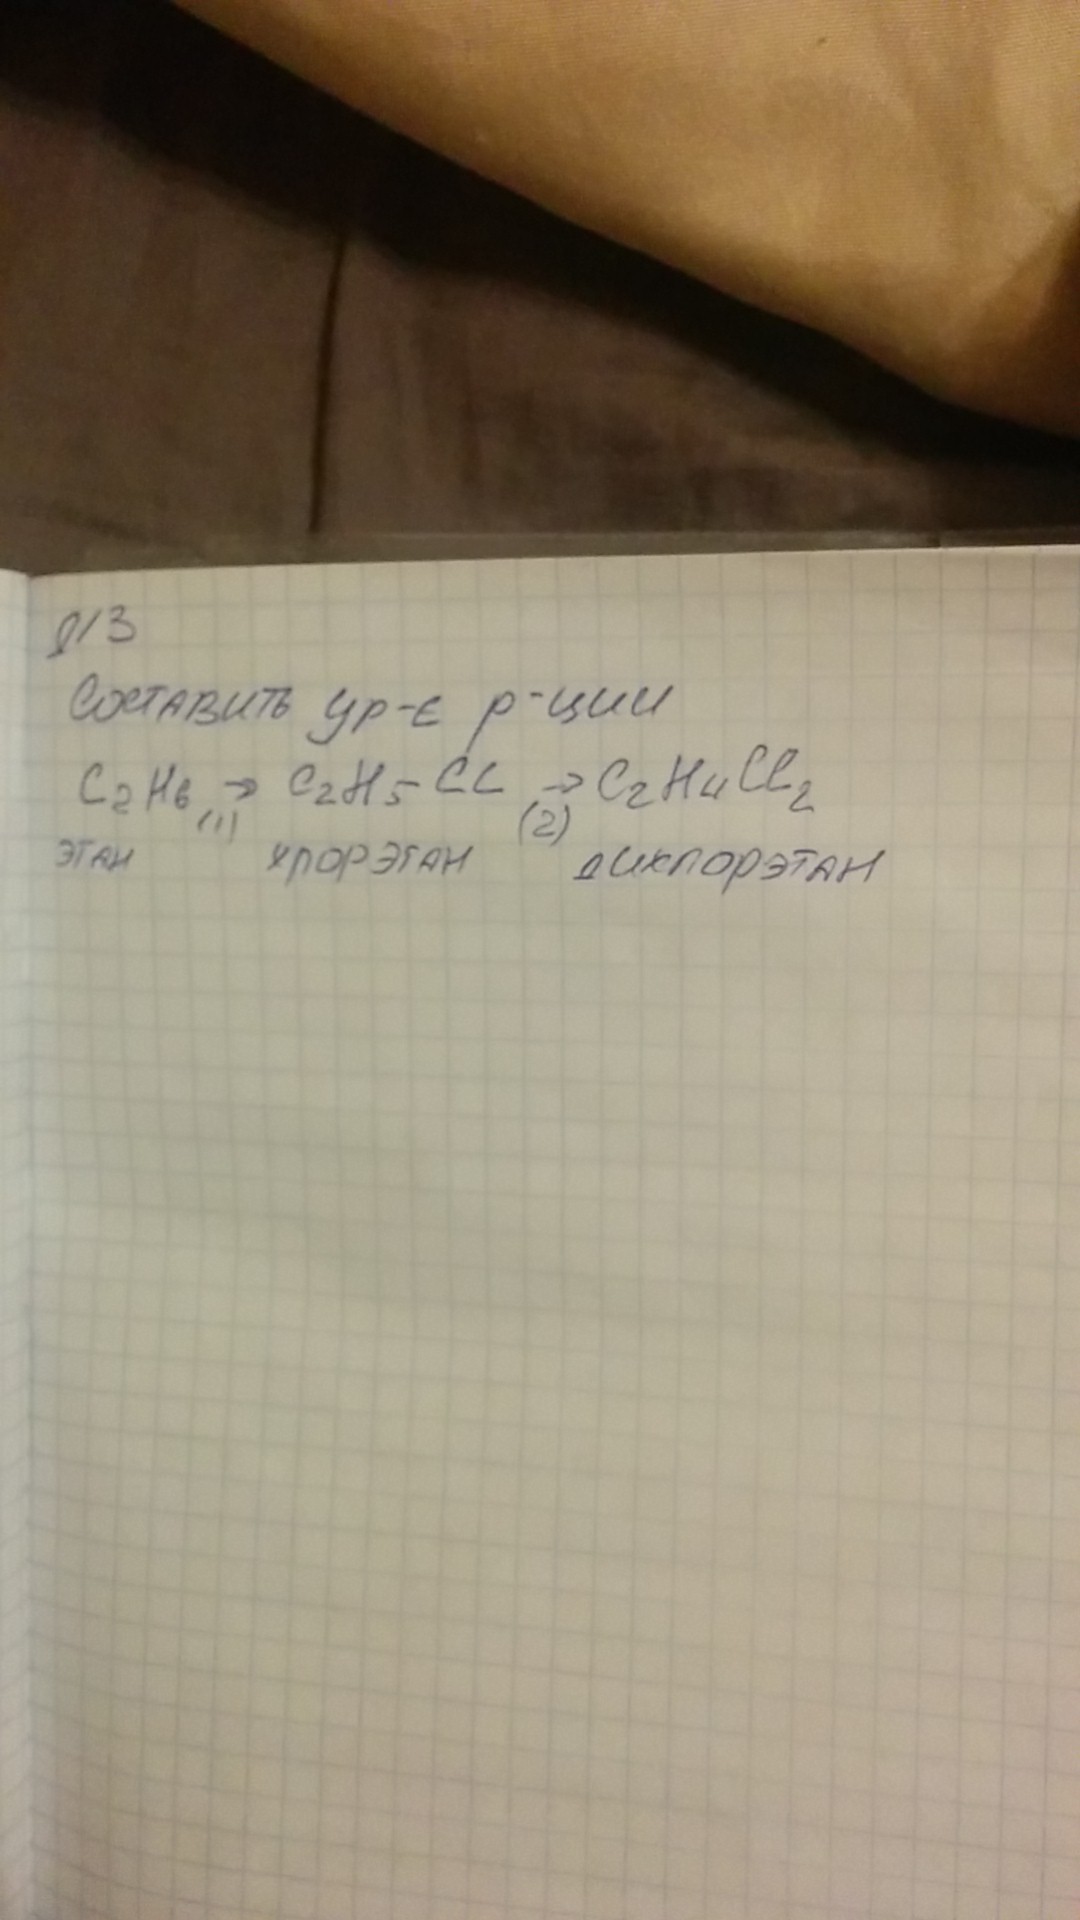 Д/З
Составить ур-е р-ции
C₂H₆ → C₂H₅-Cl → C₂H₄Cl₂
(1) (2)
этан хлорэтан дихлорэтан